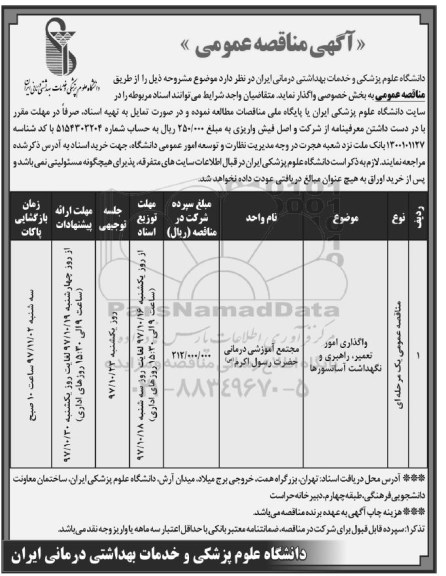 «آگهی مناقصه عمومی»
دانشگاه علوم پزشکی و خدمات بهداشتی درمانی ایران
دانشگاه علوم پزشکی و خدمات بهداشتی درمانی ایران در نظر دارد موضوع مشروحه ذیل را از طریق
مناقصه عمومی به بخش خصوصی واگذار نماید. متقاضیان واجد شرایط می‌توانند اسناد مربوطه را در
سایت دانشگاه علوم پزشکی ایران یا پایگاه ملی مناقصات مطالعه نموده و در صورت تمایل به تهیه اسناد، صرفاً در مهلت مقرر
با در دست داشتن معرفینامه از شرکت و اصل فیش واریزی به مبلغ ۲۵۰/۰۰۰ ریال به حساب شماره ۵۱۵۴۳۰۳۲۰۴ با کد شناسه
۱۳۰۰۱۰۱۱۲۷ بانک ملت نزد شعبه هجرت در وجه مدیریت نظارت و توسعه امور عمومی دانشگاه، جهت خرید اسناد به آدرس ذکر شده
مراجعه نمایند. لازم به ذکر است دانشگاه علوم پزشکی ایران در قبال اطلاعات سایت های متفرقه، پذیرای هیچگونه مسئولیتی نمی‌باشد و
پس از خرید اوراق به هیچ عنوان مبالغ دریافتی عودت داده نخواهد شد.
ردیف
نوع
موضوع
نام واحد
مبلغ سپرده شرکت در مناقصه (ریال)
مهلت توزیع اسناد
جلسه توجیهی
مهلت ارائه پیشنهادات
زمان بازگشایی پاکات
۱
مناقصه عمومی یک مرحله‌ای
واگذاری امور تعمیر، راهبری و نگهداشت آسانسورها
مجتمع آموزشی درمانی حضرت رسول اکرم
۲۱۲/۰۰۰/۰۰۰
از روز یکشنبه ۹۷/۱۰/۱۶ لغایت روز سه شنبه ۹۷/۱۰/۱۸ (ساعت ۹ الی ۱۵:۳۰ روزهای اداری)
روز یکشنبه ۹۷/۱۰/۲۳
از روز چهارشنبه ۹۷/۱۰/۱۹ لغایت روز یکشنبه ۹۷/۱۰/۳۰ (ساعت ۹ الی ۱۵:۳۰ روزهای اداری)
سه شنبه ۹۷/۱۱/۰۲ ساعت ۱۰ صبح
ParsNamadData
۰۲۱-۸۸۳۴۹۶۷۰-۵
※※※ آدرس محل دریافت اسناد: تهران، بزرگراه همت، خروجی برج میلاد، میدان آرش، دانشگاه علوم پزشکی ایران، ساختمان معاونت
دانشجویی فرهنگی، طبقه چهارم، دبیرخانه حراست
※※※ هزینه چاپ آگهی به عهده برنده مناقصه می‌باشد.
تذکر۱: سپرده قابل قبول برای شرکت در مناقصه، ضمانتنامه معتبر بانکی با حداقل اعتبار سه ماهه یا واریز وجه نقد می‌باشد.
دانشگاه علوم پزشکی و خدمات بهداشتی درمانی ایران